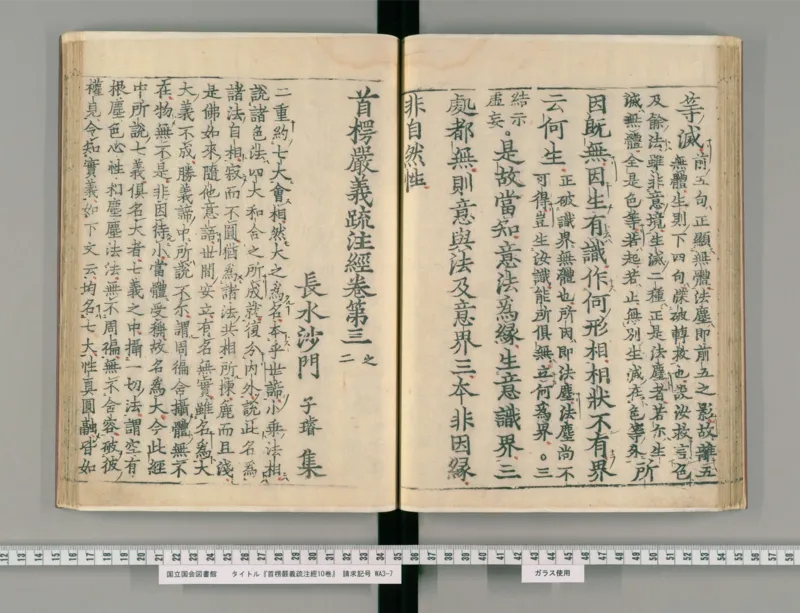 等滅
前五句正顯無體法塵即前五之影故離五
無體生則下四句牒破轉救也設汝救言色
及餘法雖非意境生滅二種正是法塵者若尓生
滅無體全是色等若起若止無別生滅在色等外
所
因既無因生有識作何形相相狀不有界
云何生
正破識界無體也所因即法塵法塵尚不
可得豈生汝識能所俱無立何爲界。三
結示
虛妄
。是故當知意法爲緣生意識界三
處都無則意與法及意界三本非因緣
非自然性
首楞嚴義疏注經卷第三之二
長水沙門 子璿 集
二重約七大會 相然大之爲名本乎世諦小乗法相
說諸色法四大和合之所成就後分内外說此名爲
諸法自相寂而不圓猶爲諸法共相所揀麁而且淺
是佛如來隨他意語世間安立有名無實雖名爲大
大義不成勝義諦中所說不尓謂周徧含攝體無不
在物無不是非因待小當體受稱故名爲大今此經
中所說七義俱名大者七義之中攝一切法謂空有
根塵色心性相塵塵法法無不周徧無不含容破彼
權見令知實義如下文云均名七大性真圓融皆如
12 13 14 15 16 17 18 19 20 21 22 23 24 25 26 27 28 29 30 31 32 33 34 35 36 37 38 39 40 41 42 43 44 45 46 47 48 49 50 51 52 53 54 55 56 57 58
国立国会図書館 タイトル『首楞嚴義疏注經10巻』 請求記号 WA3-7
ガラス使用